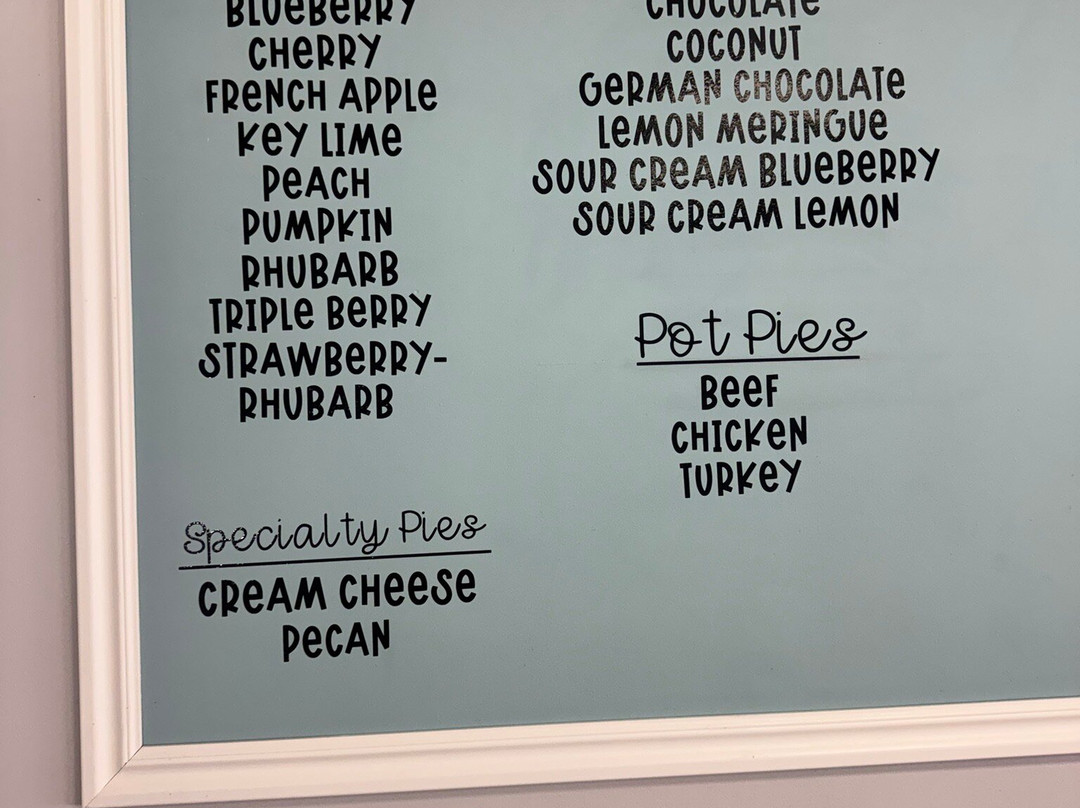 BLUEBERRY
CHERRY
FRENCH APPLE
KEY LIME
PEACH
PUMPKIN
RHUBARB
TRIPLE BERRY
STRAWBERRY-
RHUBARB
Specialty Pies
CREAM CHEESE
PECAN
CHOCOLATE
COCONUT
GERMAN CHOCOLATE
LEMON MERINGUE
SOUR CREAM BLUEBERRY
SOUR CREAM LEMON
Pot Pies
BEEF
CHICKEN
TURKEY